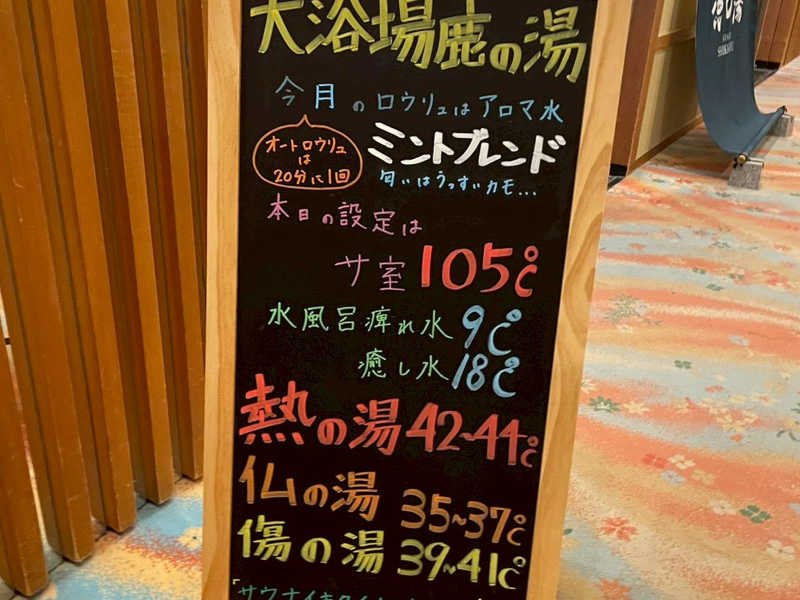 大浴場鹿の湯
今月のロウリュはアロマ水
オートロウリュ
は
20分に1回
ミントブレンド
匂いはうっすいカモ...
本日の設定は
サ室 105℃
水風呂痺れ水 9℃
癒し水 18℃
熱の湯 42~44℃
仏の湯 35~37℃
傷の湯 39~41℃
「サウナイキタイ